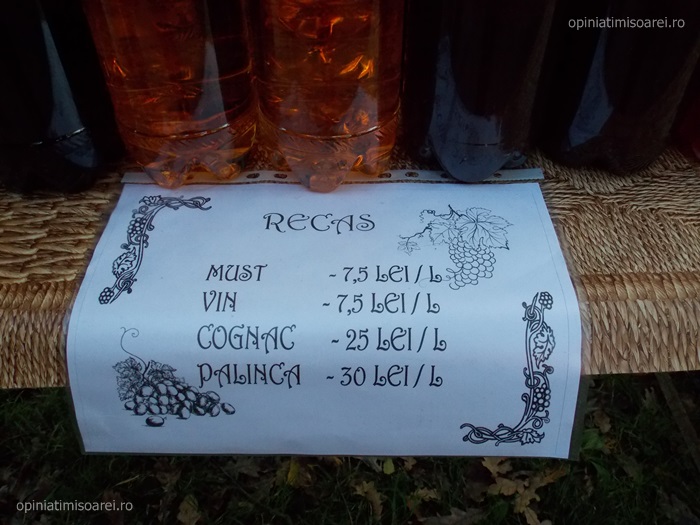 opiniatimisoarei.ro
RECAS
MUST - 7,5 LEI / L
VIN - 7,5 LEI / L
COGNAC - 25 LEI / L
PALINCA - 30 LEI / L
opiniatimisoarei.ro